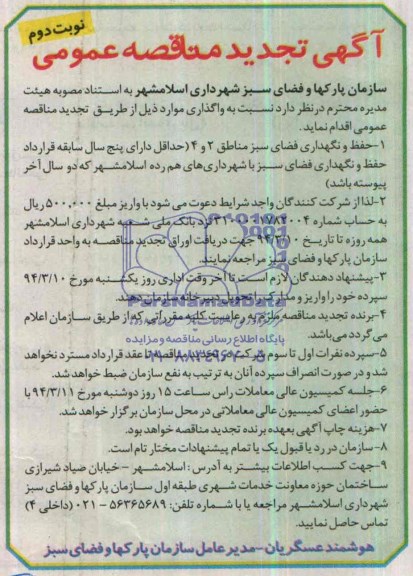 نوبت دوم
آگهی تجدید مناقصه عمومی
سازمان پارکها و فضای سبز شهرداری اسلامشهر به استناد مصوبه هیئت
مدیره محترم درنظر دارد نسبت به واگذاری موارد ذیل از طریق تجدید مناقصه
عمومی اقدام نماید.
۱-حفظ و نگهداری فضای سبز مناطق ۲ و ۴ (حداقل دارای پنج سال سابقه قرارداد
حفظ و نگهداری فضای سبز با شهرداری‌های هم رده اسلامشهر که دو سال آخر
پیوسته باشد)
۲-لذا از شرکت کنندگان واجد شرایط دعوت می شود با واریز مبلغ ۵۰۰,۰۰۰ ریال
به حساب شماره نزد بانک ملی شعبه شهرداری اسلامشهر
همه روزه تا تاریخ ۹۴/۳/۱۰ جهت دریافت اوراق تجدید مناقصه به واحد قرارداد
سازمان پارکها و فضای سبز مراجعه نمایند.
۳-پیشنهاد دهندگان لازم است تا آخر وقت اداری روز یکشنبه مورخ ۹۴/۳/۱۰
سپرده خود را واریز و مدارک را تحویل دبیرخانه سازمان دهند.
۴-برنده تجدید مناقصه ملزم به رعایت کلیه مقرراتی که از طریق سازمان اعلام
می گردد می‌باشد.
پایگاه اطلاع رسانی مناقصه و مزایده
۵-سپرده نفرات اول تا سوم شرکت در مناقصه تا عقد قرارداد مسترد نخواهد
شد و در صورت انصراف سپرده آنان به ترتیب به نفع سازمان ضبط خواهد شد.
۶-جلسه کمیسیون عالی معاملات راس ساعت ۱۵ روز دوشنبه مورخ ۹۴/۳/۱۱ با
حضور اعضای کمیسیون عالی معاملاتی در محل سازمان برگزار خواهد شد.
۷-هزینه چاپ آگهی بعهده برنده تجدید مناقصه خواهد بود.
۸-سازمان در رد یا قبول یک یا تمام پیشنهادات مختار تام است.
۹-جهت کسب اطلاعات بیشتر به آدرس : اسلامشهر - خیابان صیاد شیرازی
ساختمان حوزه معاونت خدمات شهری طبقه اول سازمان پارکها و فضای سبز
شهرداری اسلامشهر مراجعه یا با شماره تلفن: ۵۶۳۶۵۶۸۹ - ۰۲۱ (داخلی ۴)
تماس حاصل نمایید.
هوشمند عسگریان-مدیر عامل سازمان پارکها و فضای سبز